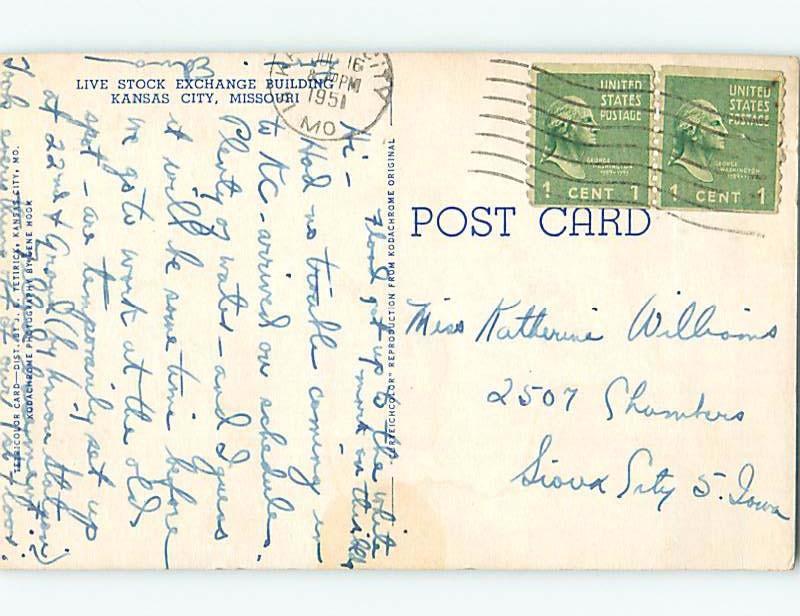 LIVE STOCK EXCHANGE BUILDING
KANSAS CITY, MISSOURI
JUL 16
PM
1951
MO
UNITED
STATES
POSTAGE
GEORGE
WASHINGTON
1789-1797
1 CENT 1
UNITED
STATES
POSTAGE
GEORGE
WASHINGTON
1 CENT 1
POST CARD
Miss Katherine Williams
2507 Chambers
Sioux City 5. Iowa
Hi -
Had no trouble coming in
to KC - arrived on schedule.
Plenty of water - and I guess
it will be some time before
we go to work at the old
spot - are temporarily set up
at 22nd & Grand (I know that you
Flood got up to the white
mark on this bldg
REPRODUCTION FROM KODACHROME ORIGINAL
KODACHROME PHOTOGRAPHY BY GENE HOOK
CARD—DIST. BY J. TETIRICK, KANSAS CITY, MO.